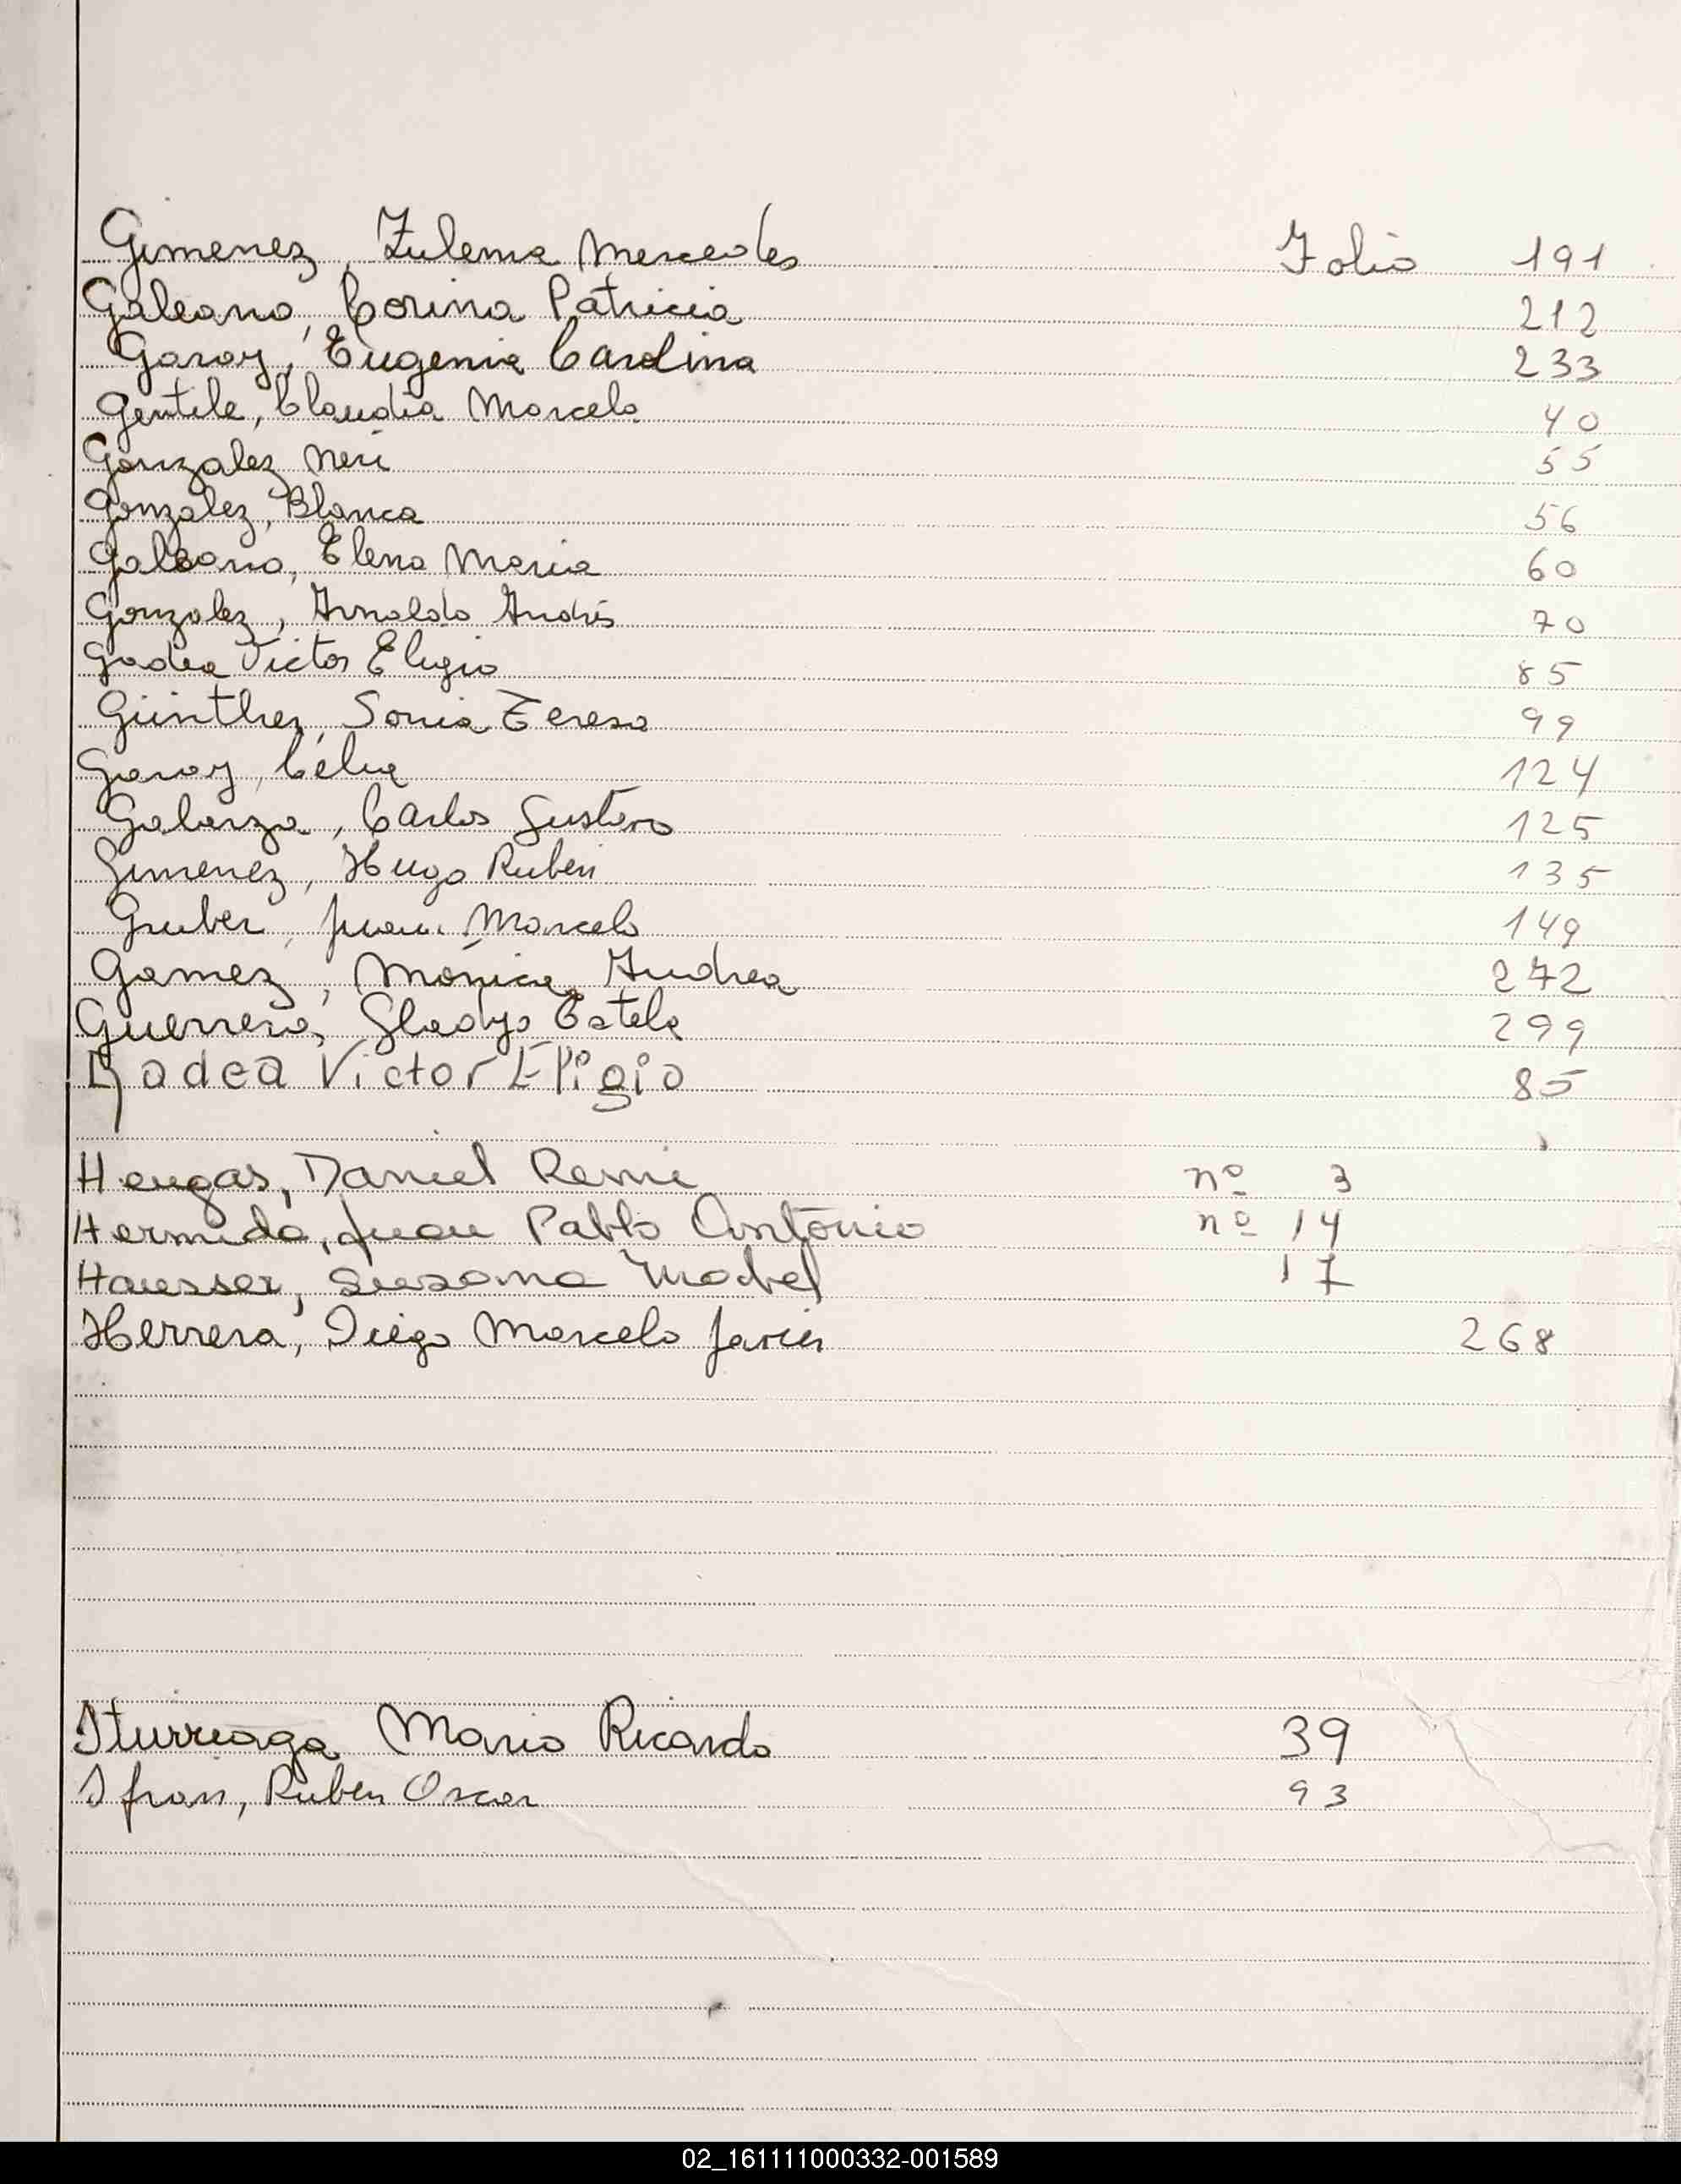 Gimenez, Zulema Mercedes Folio 191
Galeano, Corina Patricia 212
Garay, Eugenia Carolina 233
Gentile, Claudia Marcela 40
Gonzalez Neri 55
Gonzalez, Blanca 56
Galeano, Elena Maria 60
Gonzalez, Arnaldo Andrés 70
Gadea Victor Eligio 85
Günther, Sonia Teresa 99
Garay, Célia 124
Galarza, Carlos Gustavo 125
Gimenez, Hugo Ruben 135
Gruber, Juan Marcelo 149
Gamez, Mónica Andrea 272
Guerrero, Gladys Estela 299
Gadea Victor Eligio 85
Hengas, Daniel Remi nº 3
Hermida, Juan Pablo Antonio nº 14
Hausser, Susana Mabel 17
Herrera, Diego Marcelo Javier 268
Iturriaga Mario Ricardo 39
Ifran, Ruben Oscar 93
02_161111000332-001589